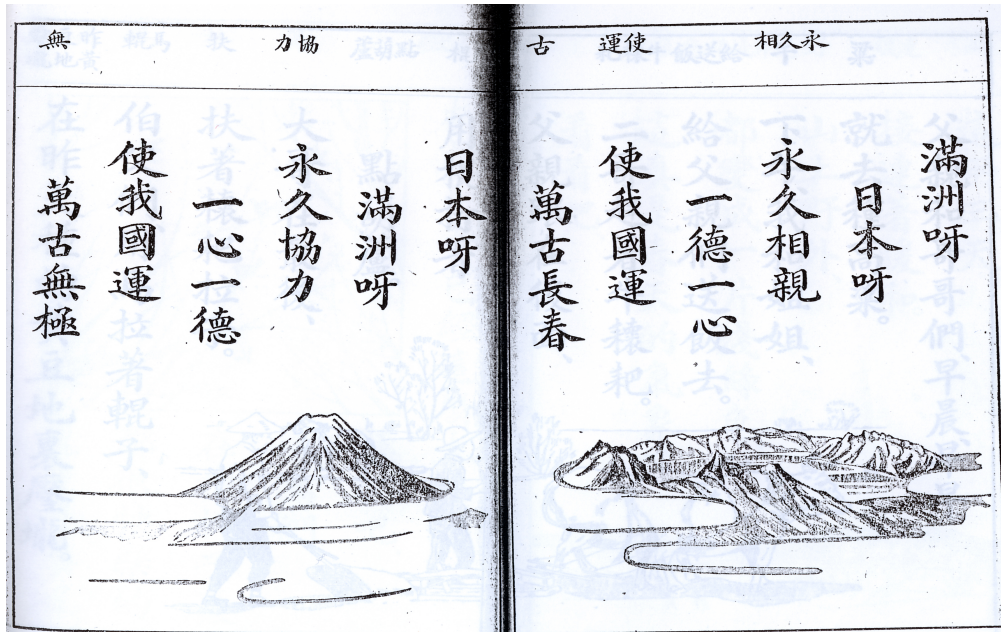 永久相
使運
古
滿洲呀
日本呀
永久相親
一德一心
使我國運
萬古長春
協力
無
日本呀
滿洲呀
永久協力
一心一德
使我國運
萬古無極